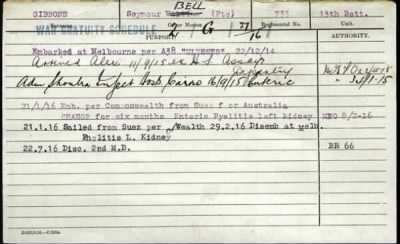 BELL
GIBBONS Seymour (Pte) 234 13th Batt.
WAR GRATUITY SCHEDULE G 71/16
PURPORT. AUTHORITY.
Embarked at Melbourne per A38 ULYSSES 22/12/14
Arrived Alex 11/9/15 ex H.S. Assaye
Dysentry
Adm Infect Hosp Cairo 16/9/15 Enteric
21/1/16 Emb. per Commonwealth from Suez for Australia
CHANGE for six months Enteric Pyelitis left kidney 8/2-16
21.1.16 Sailed from Suez per /Wealth 29.2.16 Disemb at Melb.
Pholitis L. Kidney
22.7.16 Disc. 2nd M.D. BR 66